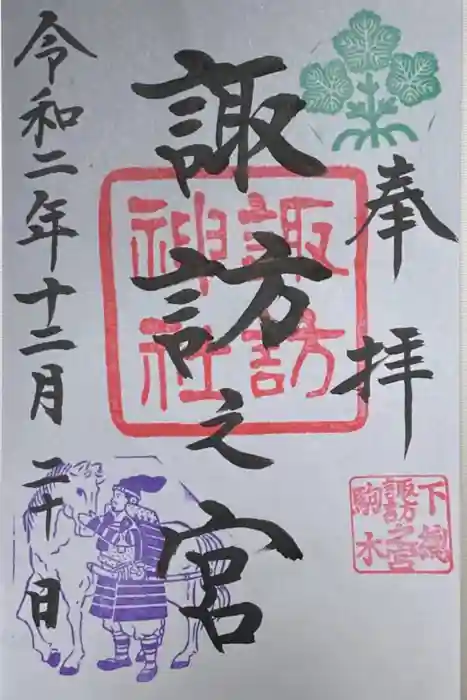 奉拝
諏訪之宮
諏訪
神社
下総
諏訪之宮
駒木
令和二年十二月二十日